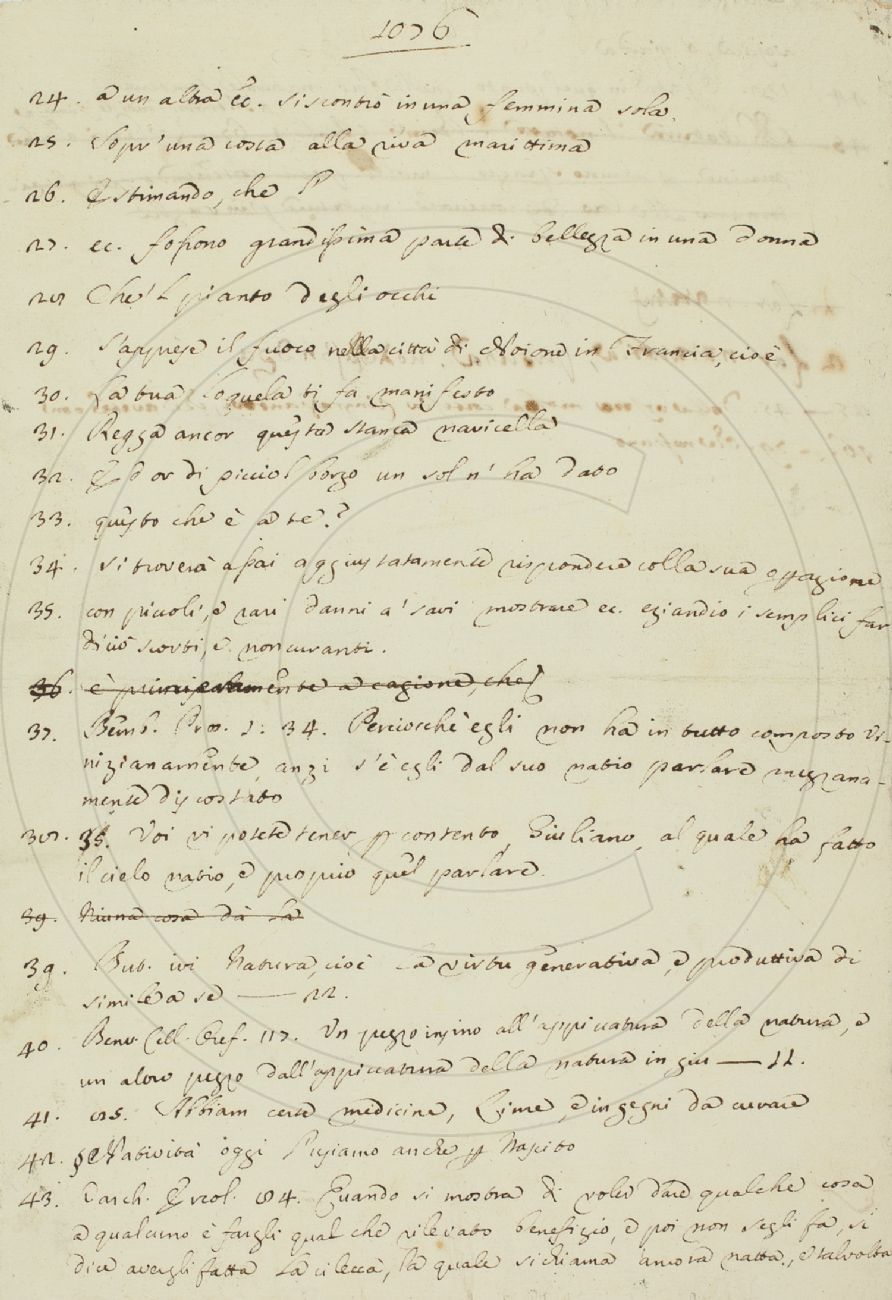 1076
24. a un'altra ec. si scontrò in una femmina sola.
25. Sopr' una cosca alla riva marittima
26. Estimando, che
27. ec. fossono grandissima parte di bellezza in una donna
28 Che'l pianto degli occhi
29. S'apprese il fuoco nella città di Noione in Francia, cioè
30. La tua loquela ti fa manifesto
31. Regga ancor questa stanca navicella
32. Ed or di picciol borgo un sol n' ha dato
33. questo che è a te?
34. si troverà assai aggiustatamente rispondere colla sua
35. con piccoli, e rari danni a' savi mostrare ec. eziandio i semplici far
di ciò scorti, e non curanti.
36. è principalmente a cagione, che
37. Bemb. Pros. 1: 34. Perciocchè egli non ha in tutto composto Vi-
nizianamente, anzi s'è egli dal suo natio parlare mezzana-
mente discostato
38. 35. Voi vi potete tener p contento, Giuliano, al quale ha fatto
il cielo natio, e proprio quel parlare.
39. Niuna cosa dà la
39. But. ivi Natura, cioè la virtù generativa, e produttiva di
simile a se —— 22.
40. Benv. Cell. Oref. 117. Un pezzo insino all'appiccatura della natura, e
un altro pezzo dall'appiccatura della natura in giù —— 11.
41. 85. Abbiam certe medicine, Lime, e ingegni da curare
42. § Natività oggi l'usiamo anche p Nascito
43. Varch. Ercol. 84. Quando si mostra di voler dare qualche cosa
a qualcuno e fargli qualche rilevato benefizio, e poi non se gli fa, si
dice avergli fatta la cilecca, la quale si chiama ancora natta, e talvolta